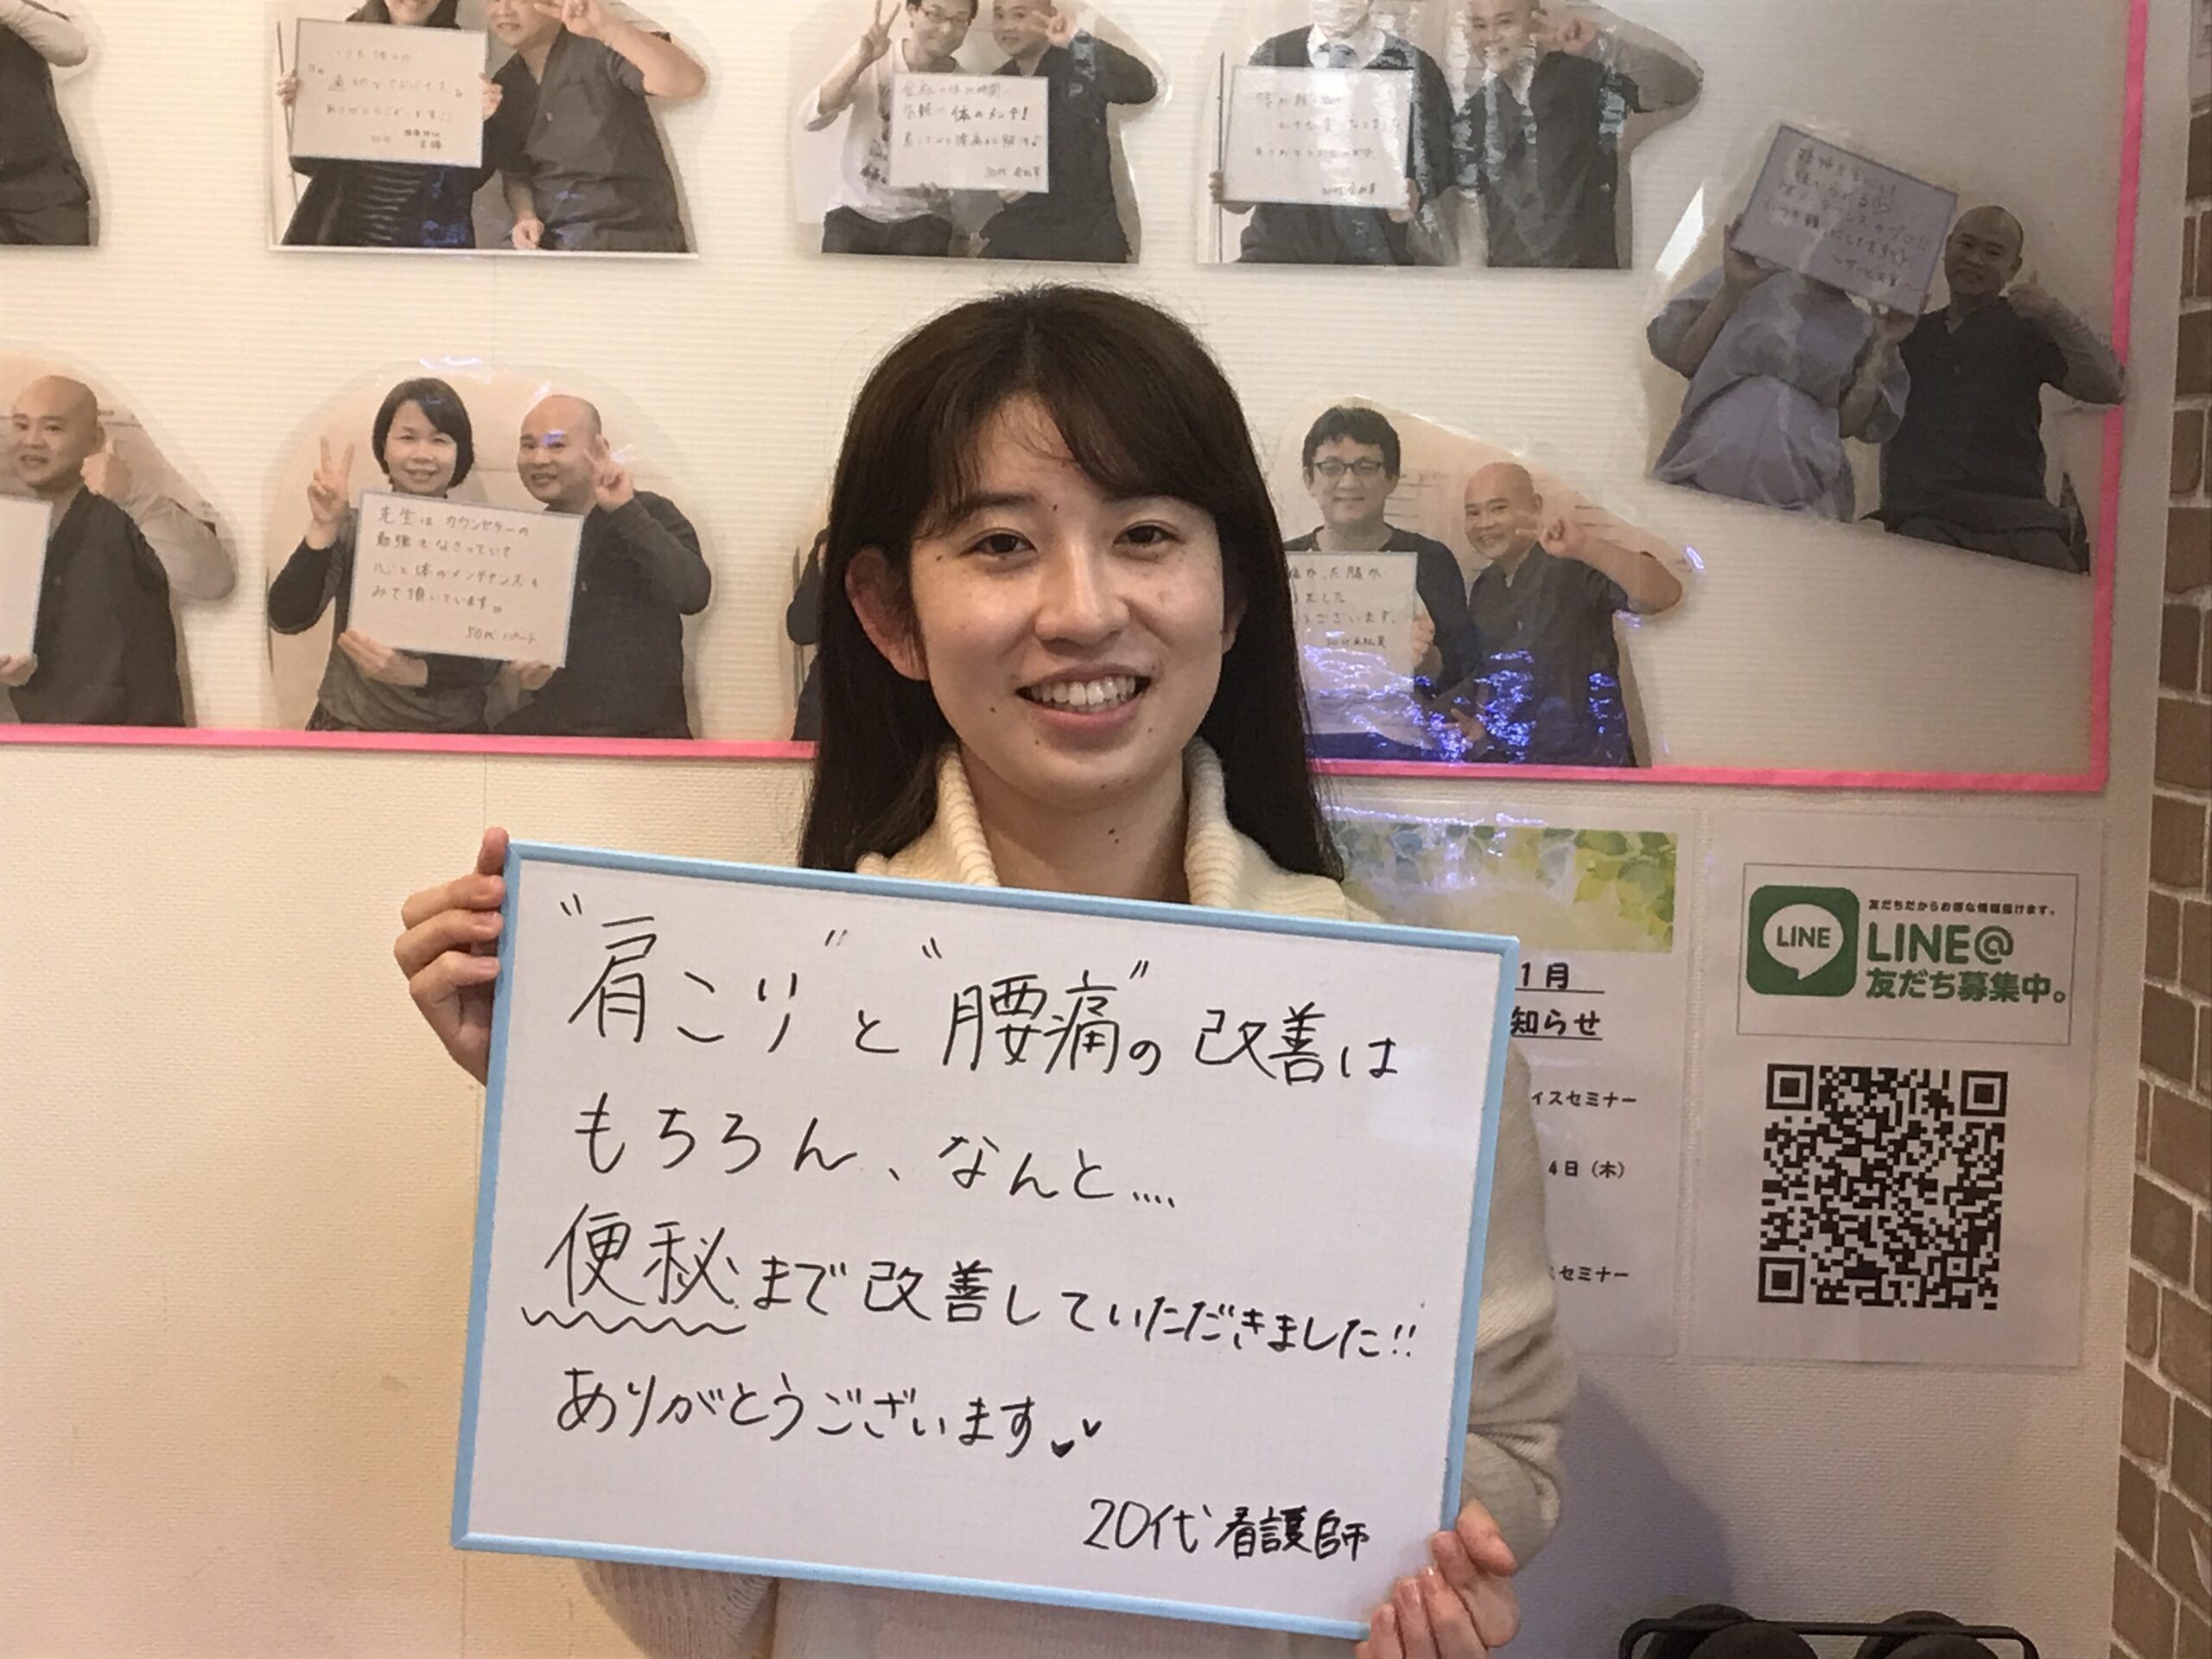 先生は カウンセラーの
勉強もなさっていて
心と体のメンテナンスも
みて頂いています。
50代 パート
体のメンテ!
ありがとうございます!!
"肩こり"と"腰痛"の改善は
もちろん、なんと....
便秘まで改善していただきました!!
ありがとうございます
20代 看護師
1月
知らせ
ィスセミナー
4日（木）
セミナー
LINE
友だちだからお得な情報届けます。
LINE@
友だち募集中。